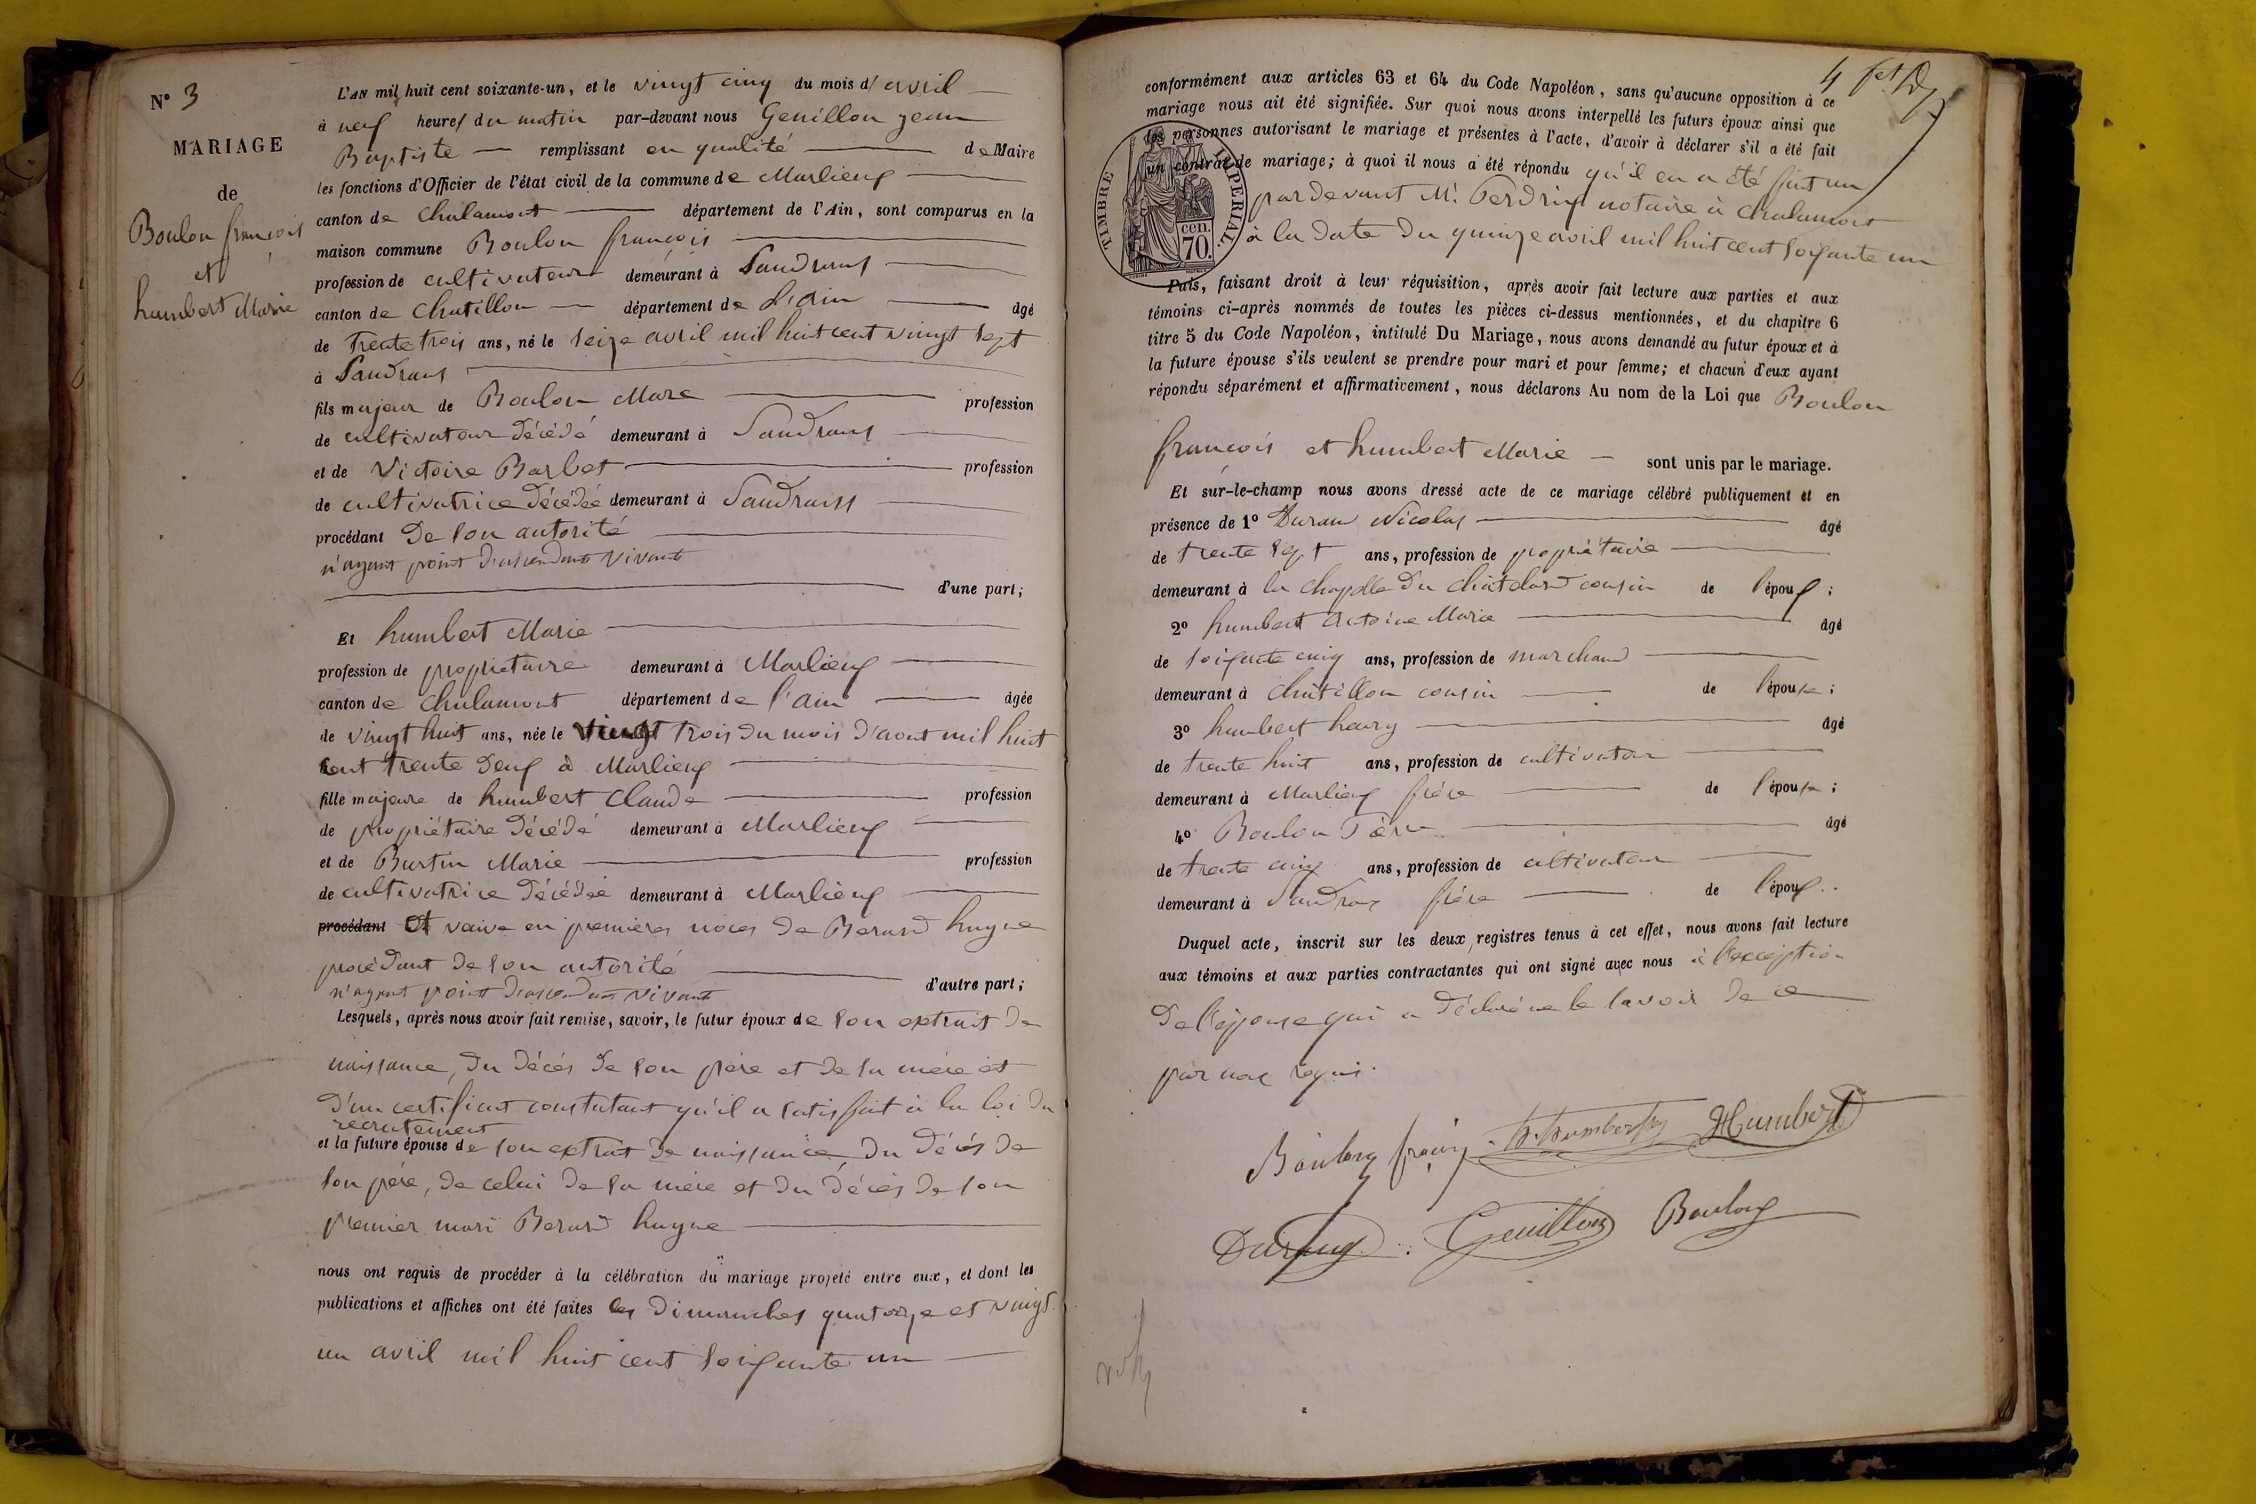 N° 3
MARIAGE
de
Boulon françois
et
humbert Marie
L'AN mil huit cent soixante-un, et le vingt cinq du mois d'avril
à neuf heures du matin par-devant nous Genillon jean
Baptiste remplissant en qualité de Maire
les fonctions d'Officier de l'état civil de la commune de Marlieux
canton de Chalamont département de l'Ain, sont comparus en la
maison commune Boulon françois
profession de cultivateur demeurant à Sandrans
canton de Chatillon département de L'ain âgé
de trente trois ans, né le seize avril mil huit cent vingt sept
à Sandrans
fils majeur de Boulon Marc profession
de cultivateur décédé demeurant à Sandrans
et de Victoire Barbet profession
de cultivatrice décédée demeurant à Sandrans
procédant de son autorité
n'ayant point d'ascendants vivants
d'une part;
Et humbert Marie
profession de propriétaire demeurant à Marlieux
canton de Chalamont département de l'ain âgée
de vingt huit ans, née le vingt trois du mois d'aout mil huit
cent trente deux à Marlieux
fille majeure de humbert Claude profession
de propriétaire décédé demeurant à Marlieux
et de Burtin Marie profession
de cultivatrice décédée demeurant à Marlieux
procédant et veuve en premières noces de Berard hugue
procédant de son autorité
n'ayant point d'ascendans vivant d'autre part;
Lesquels, après nous avoir fait remise, savoir, le futur époux de son extrait de
naissance, du décès de son père et de sa mère et
d'un certificat constatant qu'il a satisfait à la loi du
recrutement
et la future épouse de son extrait de naissance, du décès de
son père, de celui de sa mère et du décès de son
premier mari Berard hugue
nous ont requis de procéder à la célébration du mariage projeté entre eux, et dont les
publications et affiches ont été faites les dimanches quatorze et vingt
un avril mil huit cent soixante un
4
conformément aux articles 63 et 64 du Code Napoléon, sans qu'aucune opposition à ce
mariage nous ait été signifiée. Sur quoi nous avons interpellé les futurs époux ainsi que
les personnes autorisant le mariage et présentes à l'acte, d'avoir à déclarer s'il a été fait
un contrat de mariage; à quoi il nous a été répondu qu'il en a été fait un
pardevant Mr Perdrix notaire à Chalamont
à la date du quinze avril mil huit cent soixante un
TIMBRE IMPERIAL.
cen.
70.
Puis, faisant droit à leur réquisition, après avoir fait lecture aux parties et aux
témoins ci-après nommés de toutes les pièces ci-dessus mentionnées, et du chapitre 6
titre 5 du Code Napoléon, intitulé Du Mariage, nous avons demandé au futur époux et à
la future épouse s'ils veulent se prendre pour mari et pour femme; et chacun d'eux ayant
répondu séparément et affirmativement, nous déclarons Au nom de la Loi que Boulon
françois et humbert Marie sont unis par le mariage.
Et sur-le-champ nous avons dressé acte de ce mariage célébré publiquement et en
présence de 1° Duran Nicolas âgé
de trente sept ans, profession de propriétaire
demeurant à la Chapelle du Châtelard cousin de l'époux;
2° humbert Antoine Marie âgé
de soixante cinq ans, profession de marchand
demeurant à Châtillon cousin de l'épouse;
3° humbert henry âgé
de trente huit ans, profession de cultivateur
demeurant à Marlieux frère de l'épouse;
4° Boulon Pierre âgé
de trente cinq ans, profession de cultivateur
demeurant à Sandrans frère de l'époux.
Duquel acte, inscrit sur les deux registres tenus à cet effet, nous avons fait lecture
aux témoins et aux parties contractantes qui ont signé avec nous à l'exception
de l'épouse qui a déclaré ne le savoir de ce
par nous requis.
Boulon françois Humbert
Durand Genillon Boulon